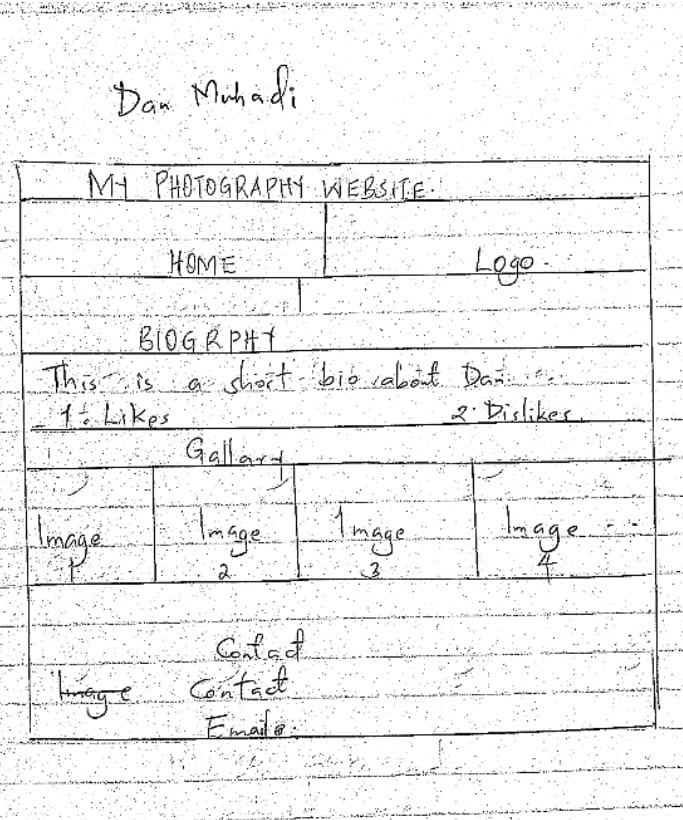 Dan Muhadi
MY PHOTOGRAPHY WEBSITE.
HOME Logo.
BIOGRPHY
This is a short bio about Dan ...
1. Likes 2. Dislikes
Gallary
Image Image Image Image
1 2 3 4
Contact
Image Contact
Email